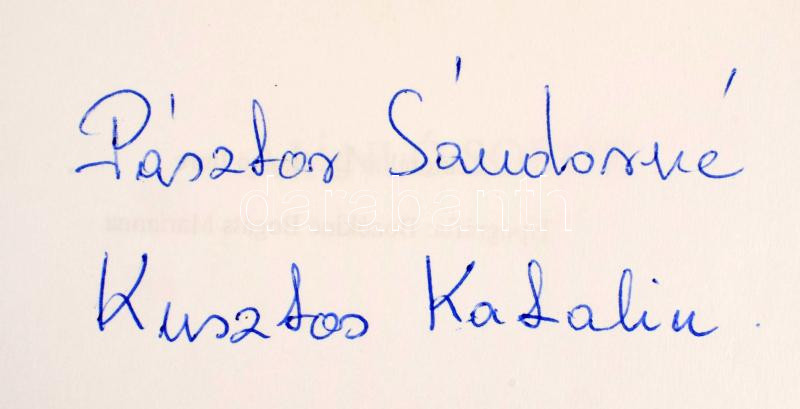 Pásztor Sándorné
darabanth
Kusztos Katalin.